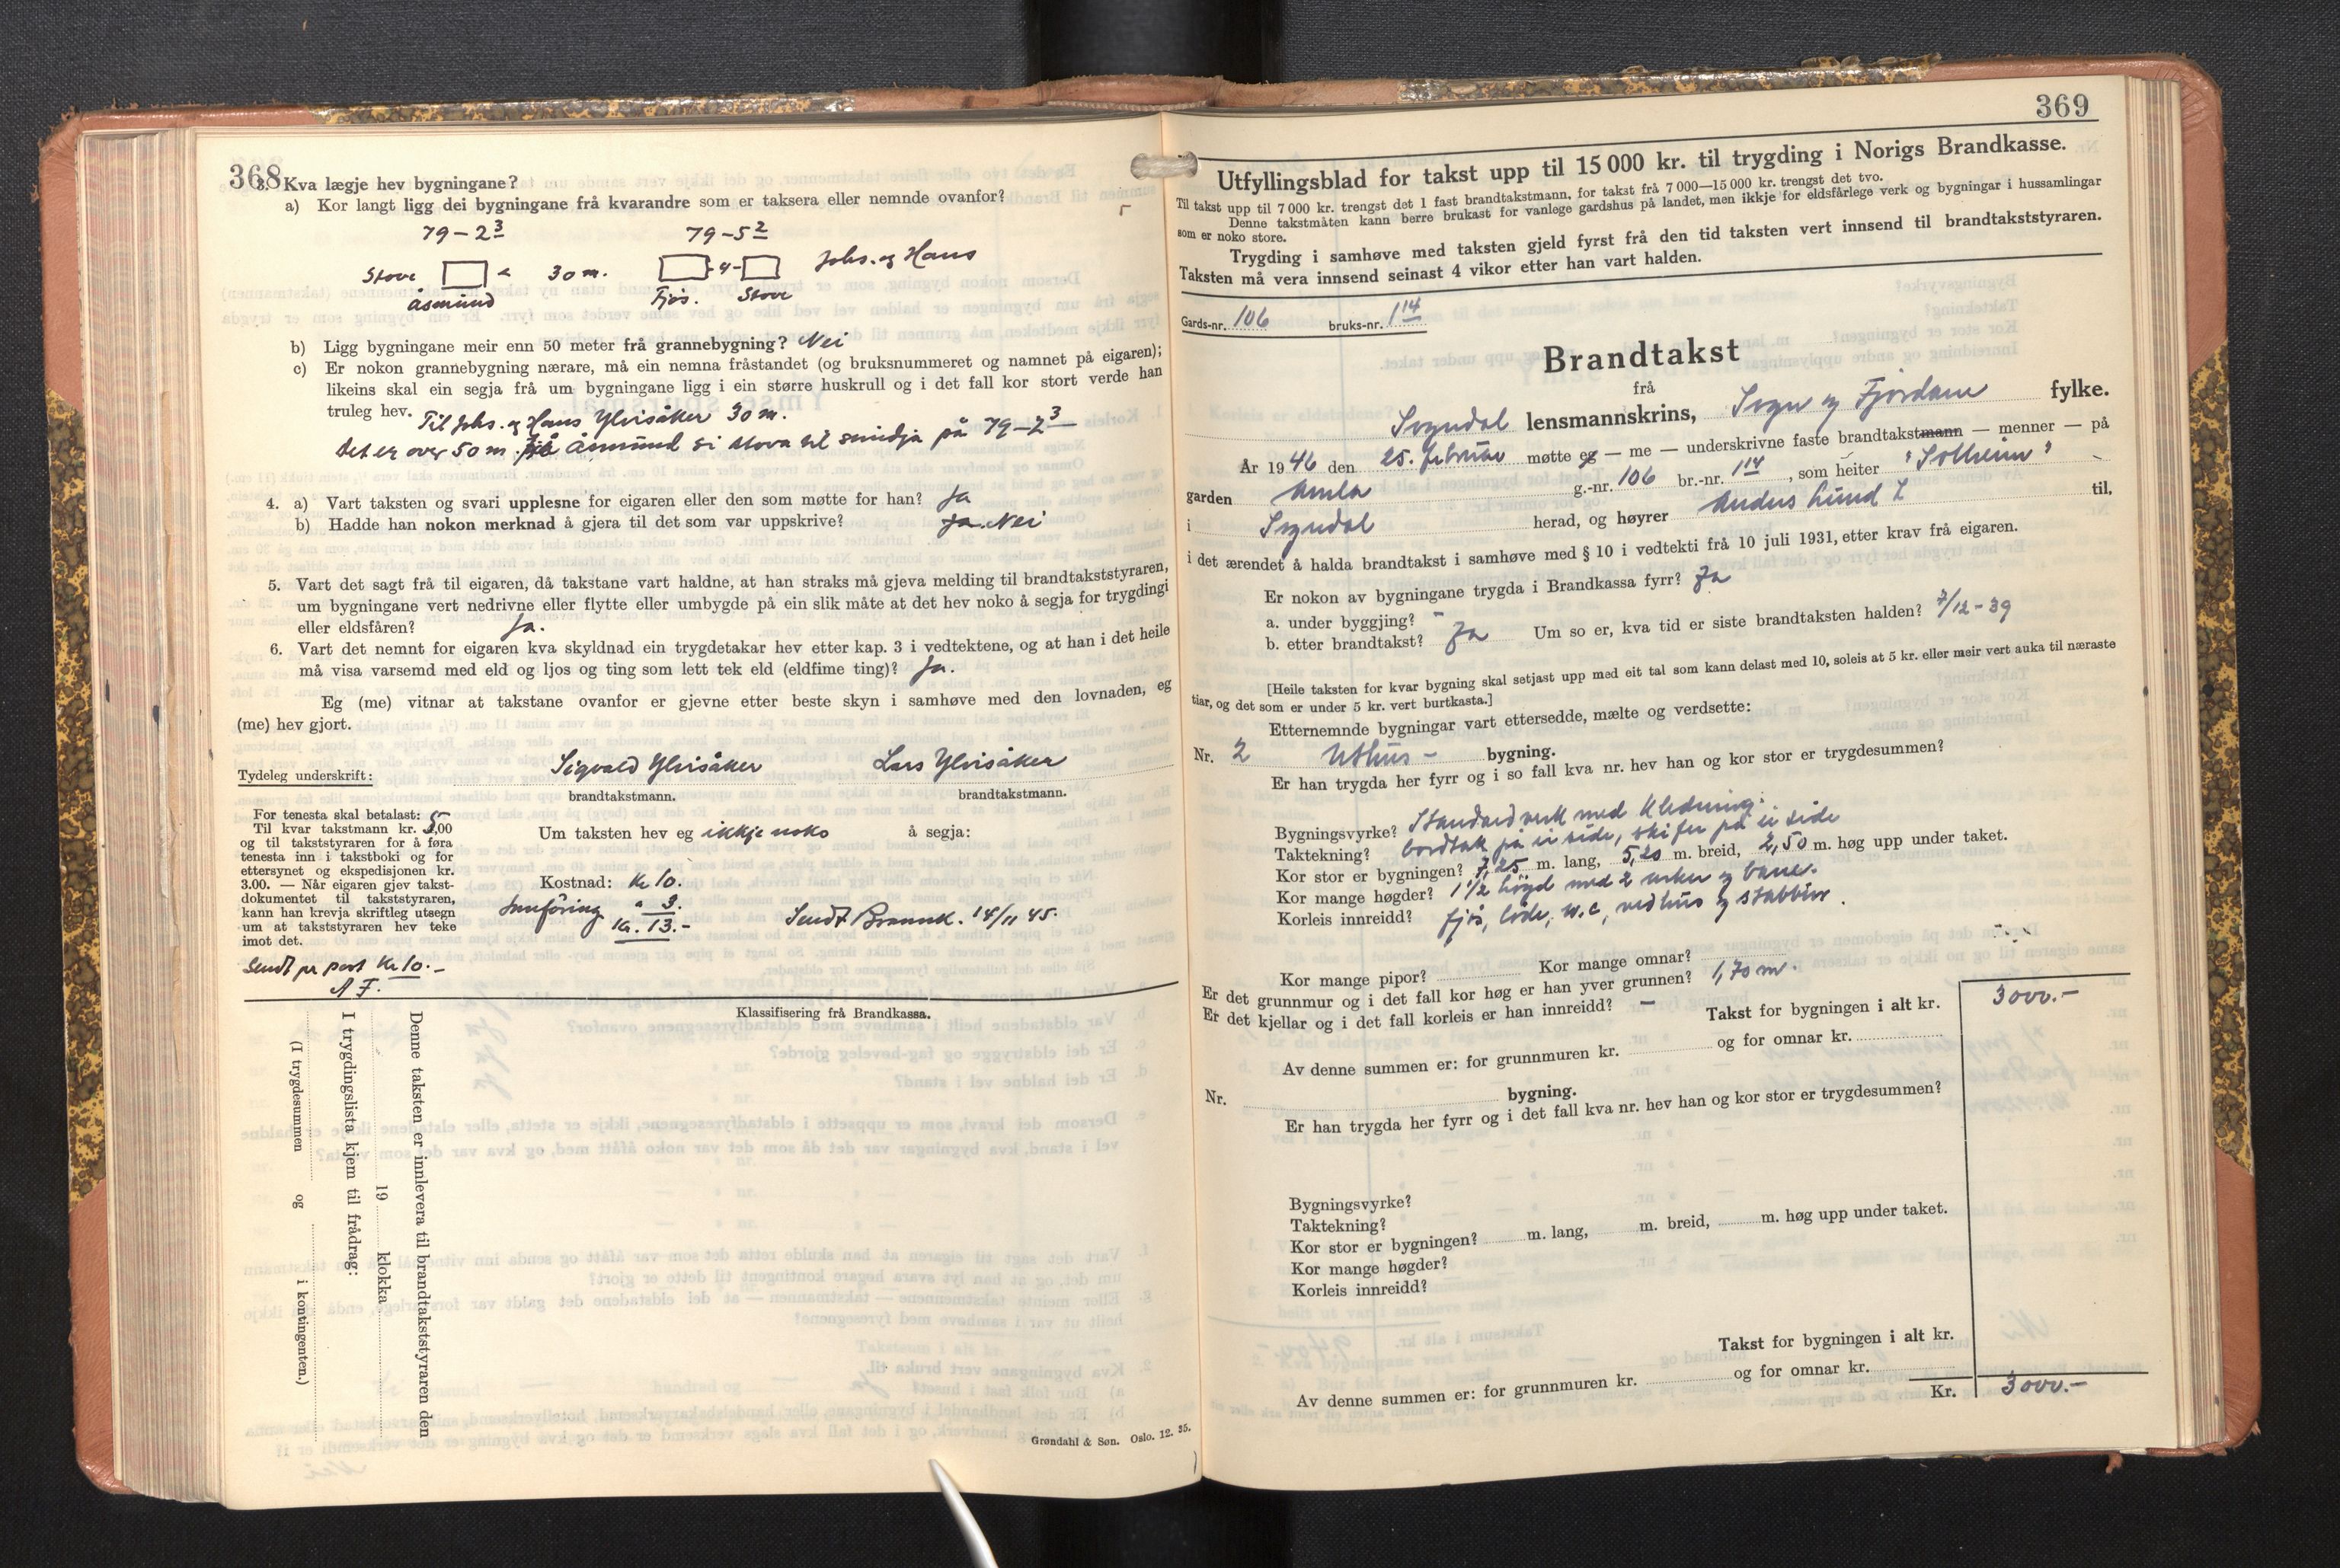 368
3. Kva lægje hev bygningane?
a) Kor langt ligg dei bygningane frå kvarandre som er taksera eller nemnde ovanfor?
79-2³ 79-5²
Stove 30 m. -4- Johs. og Hans
Åsmund Fjøs. Stove
b) Ligg bygningane meir enn 50 meter frå grannebygning? Nei
c) Er nokon grannebygning nærare, må ein nemna fråstandet (og bruksnummeret og namnet på eigaren);
likeins skal ein segja frå um bygningane ligg i ein større huskrull og i det fall kor stort verde han
truleg hev. Til Johs. og Hans Ylvisåker 30 m.
Det er over 50 m. frå Åsmund si stova til smidja på 79-2³
4. a) Vart taksten og svari upplesne for eigaren eller den som møtte for han? Ja
b) Hadde han nokon merknad å gjera til det som var uppskrive? Ja. Nei
5. Vart det sagt frå til eigaren, då takstane vart haldne, at han straks må gjeva melding til brandtakststyraren,
um bygningane vert nedrivne eller flytte eller umbygde på ein slik måte at det hev noko å segja for trygdingi
eller eldsfåren? Ja.
6. Vart det nemnt for eigaren kva skyldnad ein trygdetakar hev etter kap. 3 i vedtektene, og at han i det heile
må visa varsemd med eld og ljos og ting som lett tek eld (eldfime ting)? Ja.
Eg (me) vitnar at takstane ovanfor er gjevne etter beste skyn i samhøve med den lovnaden, eg
(me) hev gjort.
Tydeleg underskrift: Sigvald Ylvisåker Lars Ylvisåker
brandtakstmann. brandtakstmann.
For tenesta skal betalast:
Til kvar takstmann kr. 5,00
og til takststyraren for å føra
tenesta inn i takstboki og for
ettersynet og ekspedisjonen kr.
3.00. — Når eigaren gjev takst-
dokumentet til takststyraren,
kann han krevja skriftleg utsegn
um at takststyraren hev teke
imot det.
Um taksten hev eg ikkje noko å segja:
Kostnad: Kr 10.
Innføring " 3.
Kr. 13.-
Sendt Brannk. 14/11 45.
Sendt pr post Kr 10.-
A F.
Klassifisering frå Brandkassa.
Denne taksten er innlevera til brandtakststyraren den
19 klokka
I trygdingslista kjem til frådrag:
(I trygdesummen og i kontingenten.)
Grøndahl & Søn. Oslo. 12. 35.
369
Utfyllingsblad for takst upp til 15 000 kr. til trygding i Norigs Brandkasse.
Til takst upp til 7 000 kr. trengst det 1 fast brandtakstmann, for takst frå 7 000—15 000 kr. trengst det tvo.
Denne takstmåten kann berre brukast for vanlege gardshus på landet, men ikkje for eldsfårlege verk og bygningar i hussamlingar
som er noko store.
Trygding i samhøve med taksten gjeld fyrst frå den tid taksten vert innsend til brandtakststyraren.
Taksten må vera innsend seinast 4 vikor etter han vart halden.
Gards-nr. 106 bruks-nr. 1¹⁴
Brandtakst
frå
Sogndal lensmannskrins, Sogn og Fjordane fylke.
År 1946 den 25. februar møtte eg — me — underskrivne faste brandtakstmann — menner — på
garden Amla g.-nr. 106 br.-nr. 1¹⁴, som heiter "Solheim"
i Sogndal herad, og høyrer Anders Lund til,
i det ærendet å halda brandtakst i samhøve med § 10 i vedtekti frå 10 juli 1931, etter krav frå eigaren.
Er nokon av bygningane trygda i Brandkassa fyrr? Ja
a. under byggjing? -
b. etter brandtakst? Ja Um so er, kva tid er siste brandtaksten halden? 7/12-39
[Heile taksten for kvar bygning skal setjast upp med eit tal som kann delast med 10, soleis at 5 kr. eller meir vert auka til næraste
tiar, og det som er under 5 kr. vert burtkasta.]
Etternemnde bygningar vart ettersedde, mælte og verdsette:
Nr. 2 Uthus - bygning.
Er han trygda her fyrr og i so fall kva nr. hev han og kor stor er trygdesummen?
Bygningsvyrke? Standardverk med kledning.
Taktekning? bordtak på ei side, skifer på ei side
Kor stor er bygningen? 7,25 m. lang, 5,20 m. breid, 2,50 m. høg upp under taket.
Kor mange høgder? 1 1/2 høgd med 2 arker og bane.
Korleis innreidd? fjøs, løde, w.c, vedhus og stabbur.
Kor mange pipor? Kor mange omnar?
Er det grunnmur og i det fall kor høg er han yver grunnen? 1,70 m.
Er det kjellar og i det fall korleis er han innreidd? - Takst for bygningen i alt kr. 3000.-
Av denne summen er: for grunnmuren kr. og for omnar kr.
Nr. bygning.
Er han trygda her fyrr og i det fall kva nr. hev han og kor stor er trygdesummen?
Bygningsvyrke?
Taktekning?
Kor stor er bygningen? m. lang, m. breid, m. høg upp under taket.
Kor mange høgder?
Korleis innreidd?
Takst for bygningen i alt kr.
Av denne summen er: for grunnmuren kr. og for omnar kr.
Kr. 3000.-